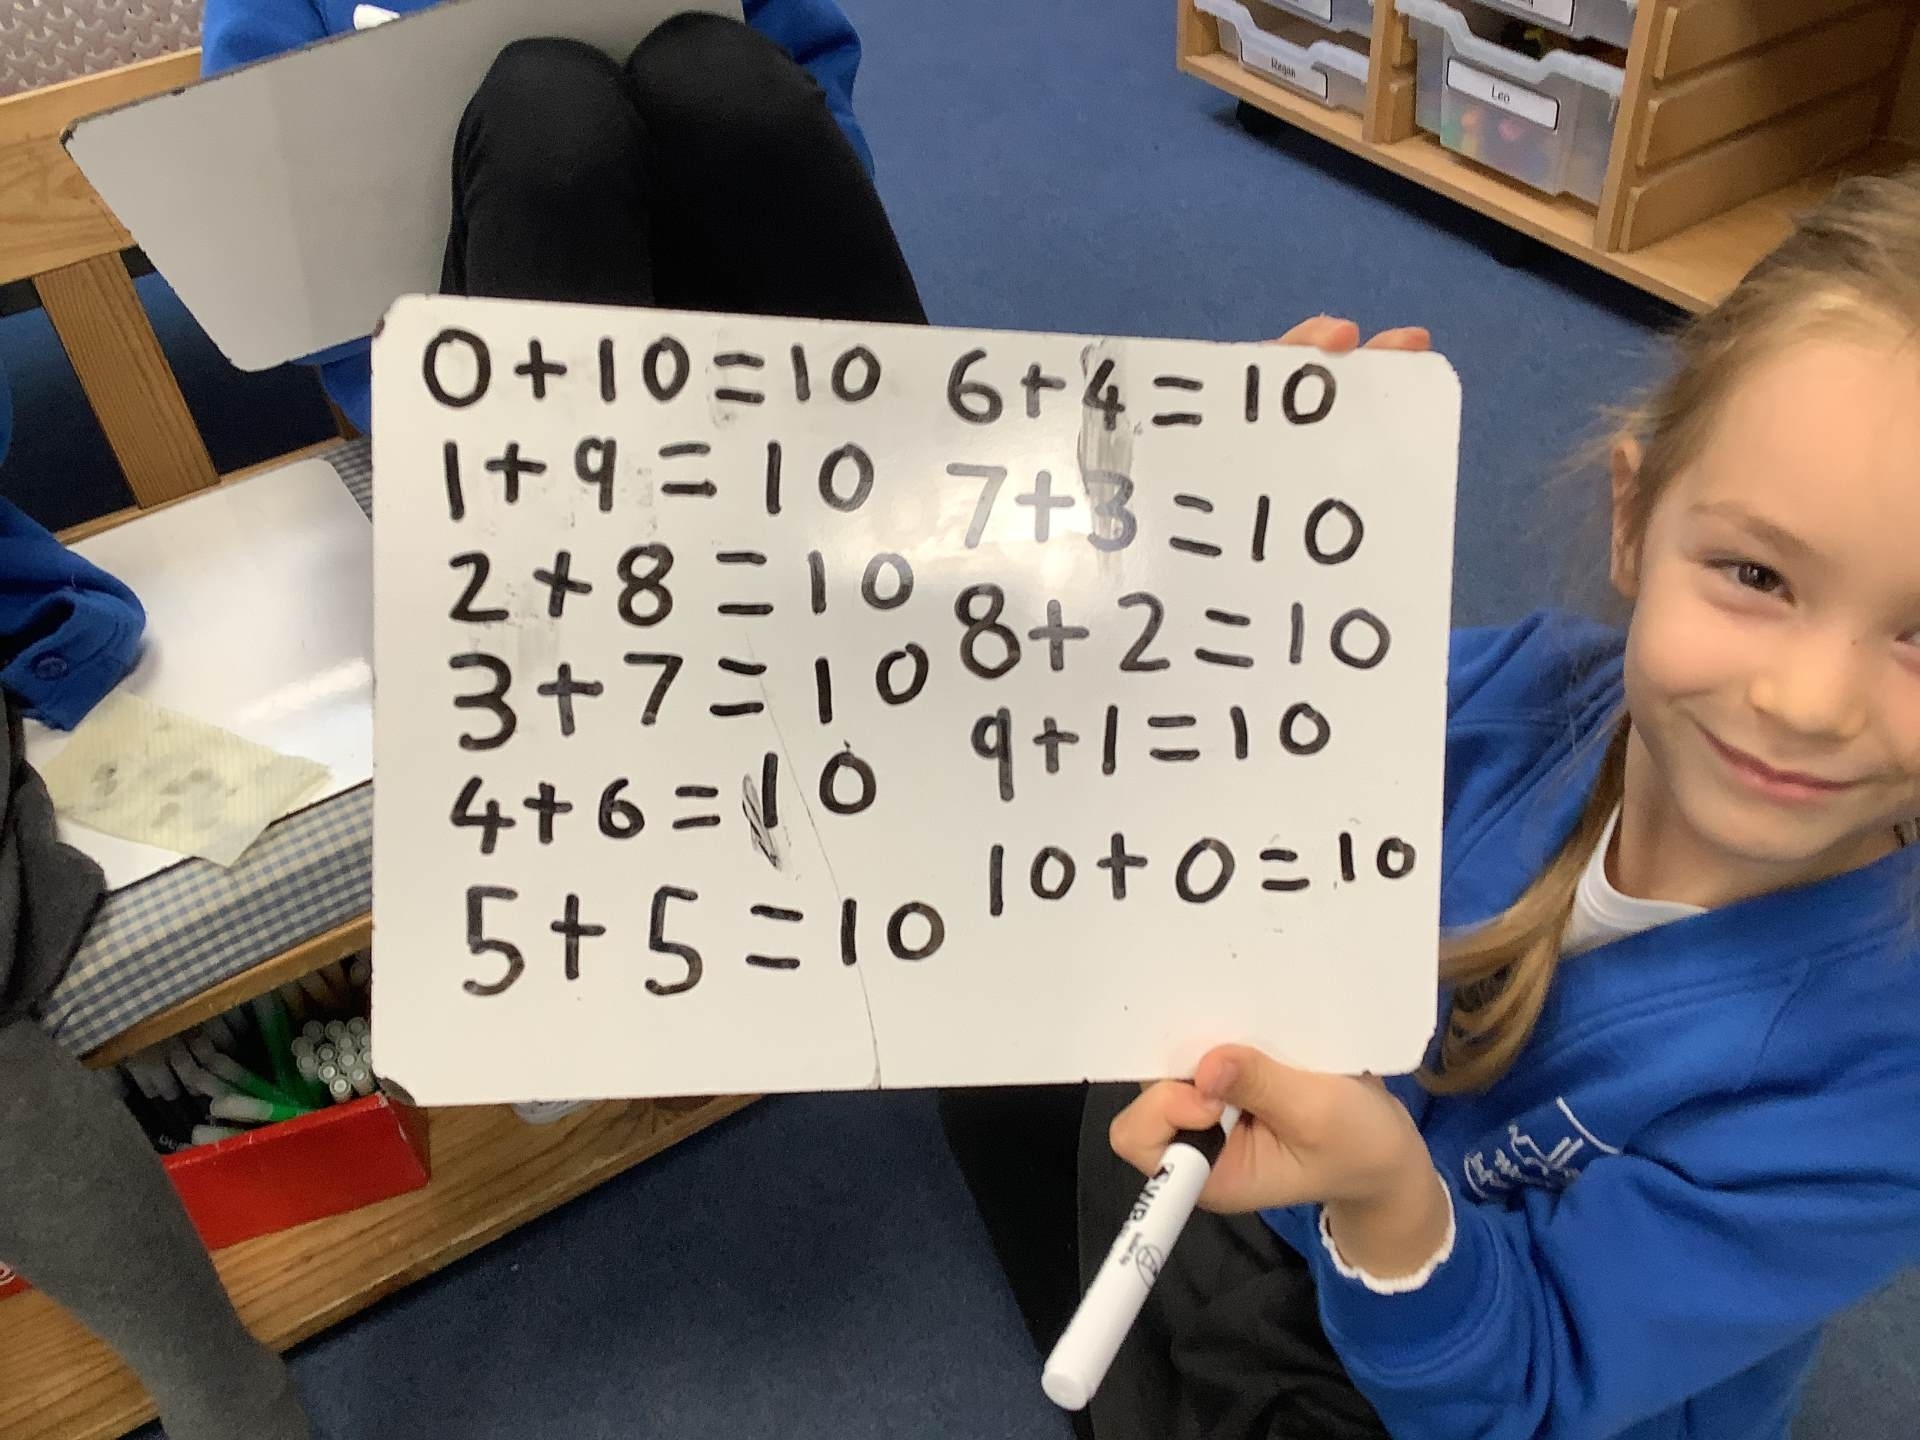 0+10=10
1+9=10
2+8=10
3+7=10
4+6=10
5+5=10
6+4=10
7+3=10
8+2=10
9+1=10
10+0=10
Regan
Leo